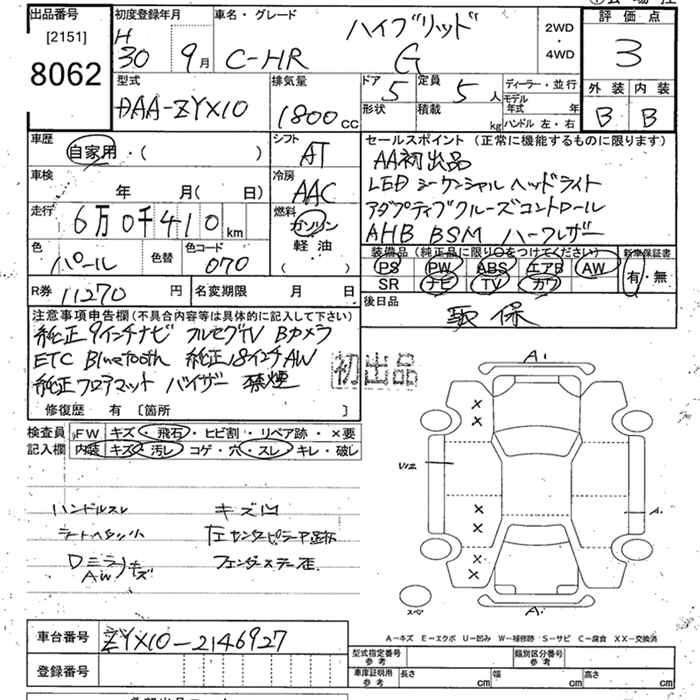 出品番号
[2151]
8062
初度登録年月
H
30 9月
車名・グレード
ハイブリッド
C-HR G
2WD
・
4WD
評価点
3
外装 内装
B B
型式
DAA-ZYX10
排気量
1800cc
ドア 5
定員 5人
形状
積載 kg
ディーラー・並行
モデル
年式 年
ハンドル 左・右
車歴
自家用・( )
シフト
AT
車検
年 月( 日)
冷房
AAC
走行
6万0千410km
燃料
ガソリン
軽油
( )
色
パール
色替
色コード
070
R券 11270円
名変期限 月 日
セールスポイント(正常に機能するものに限ります)
AA初出品
LED シーケンシャル ヘッドライト
アダプティブクルーズコントロール
AHB BSM ハーフレザー
装備品(純正品に限り○をつけてください)
PS PW ABS エアB AW
SR ナビ TV カワ
新車保証書
有・無
後日品
取 保
注意事項申告欄(不具合内容等は具体的に記入して下さい)
純正9インチナビ フルセグTV Bカメラ
ETC Bluetooth 純正18インチAW
純正フロアマット バイザー 禁煙
修復歴 有 [箇所 ]
初出品
検査員
記入欄
FW キズ・飛石・ヒビ割・リペア跡・×要
内装 キズ・汚レ・コゲ・穴・スレ・キレ・破レ
ハンドルスレ キズ凹
左センターピラー
フェンダーステー歪
AW キズ
A1
A1
A1
スペ
A-キズ E-エクボ U-凹み W-補修跡 S-サビ C-腐食 XX-交換済
車台番号 ZYX10-2146927
登録番号
型式指定番号
参考
類別区分番号
参考
車庫証明用
参考
長さ cm 幅 cm 高さ cm